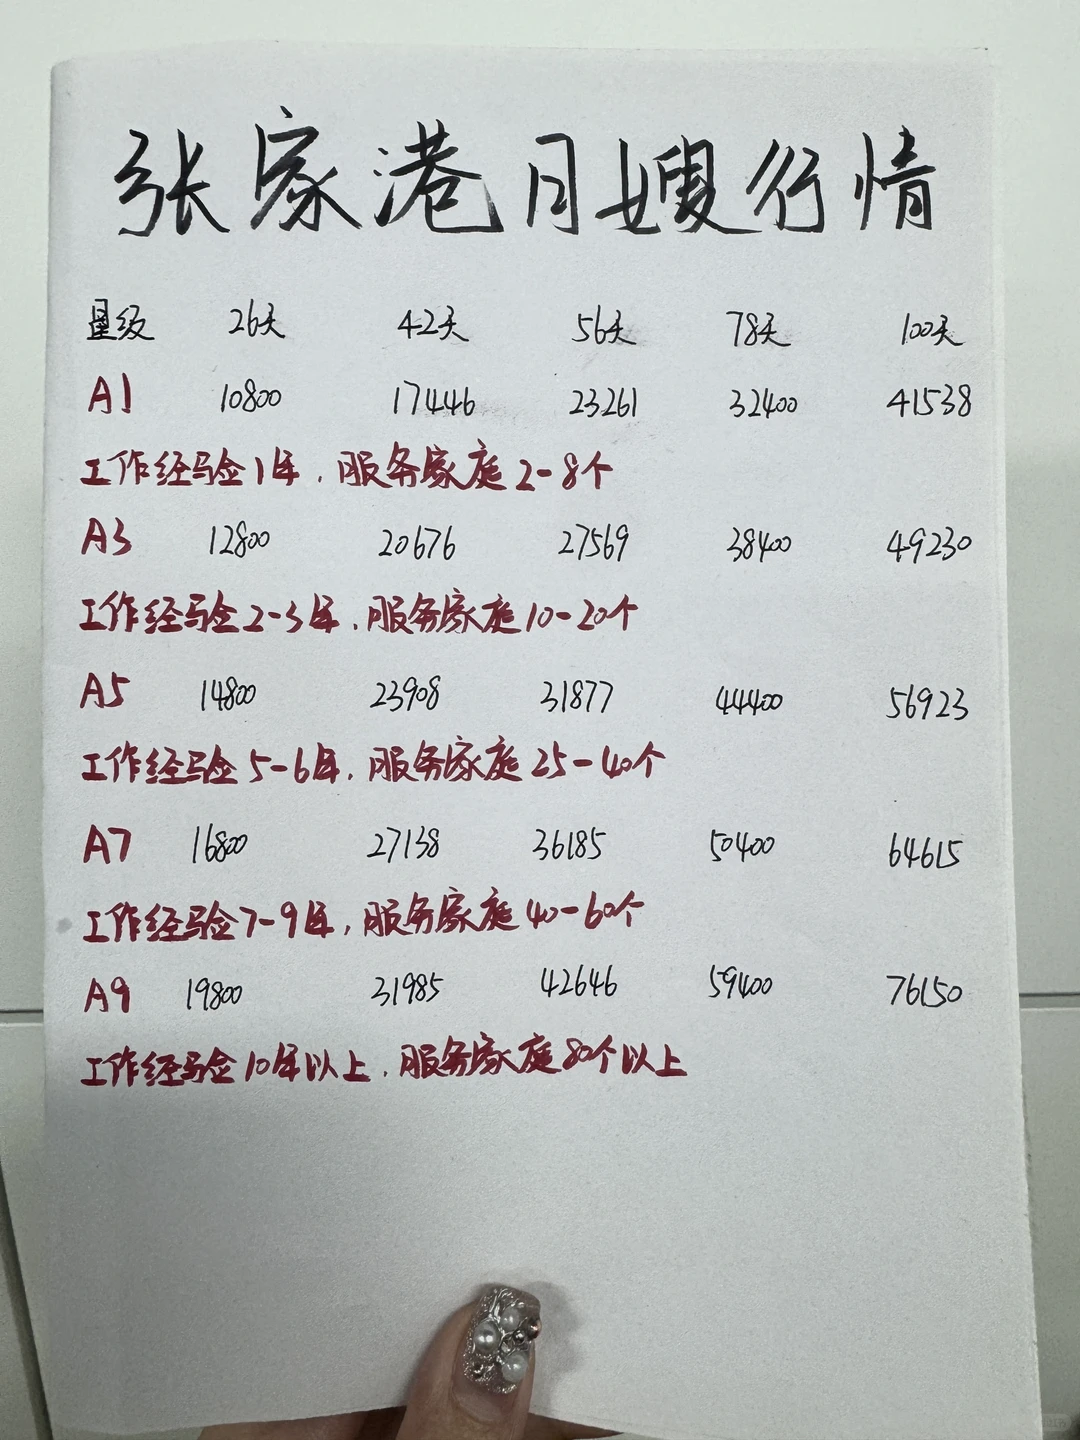 张家港月嫂行情
星级 26天 42天 56天 78天 100天
A1 10800 17446 23261 32400 41538
工作经验1年，服务家庭2-8个
A3 12800 20676 27569 38400 49230
工作经验2-3年，服务家庭10-20个
A5 14800 23908 31877 44400 56923
工作经验5-6年，服务家庭25-40个
A7 16800 27138 36185 50400 64615
工作经验7-9年，服务家庭40-60个
A9 19800 31985 42646 59400 76150
工作经验10年以上，服务家庭80个以上